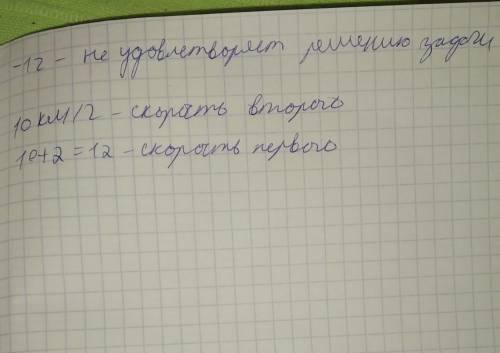 -12 - не удовлетворяет решению задачи
10 км/ч - скорость второго
10+2=12 - скорость первого